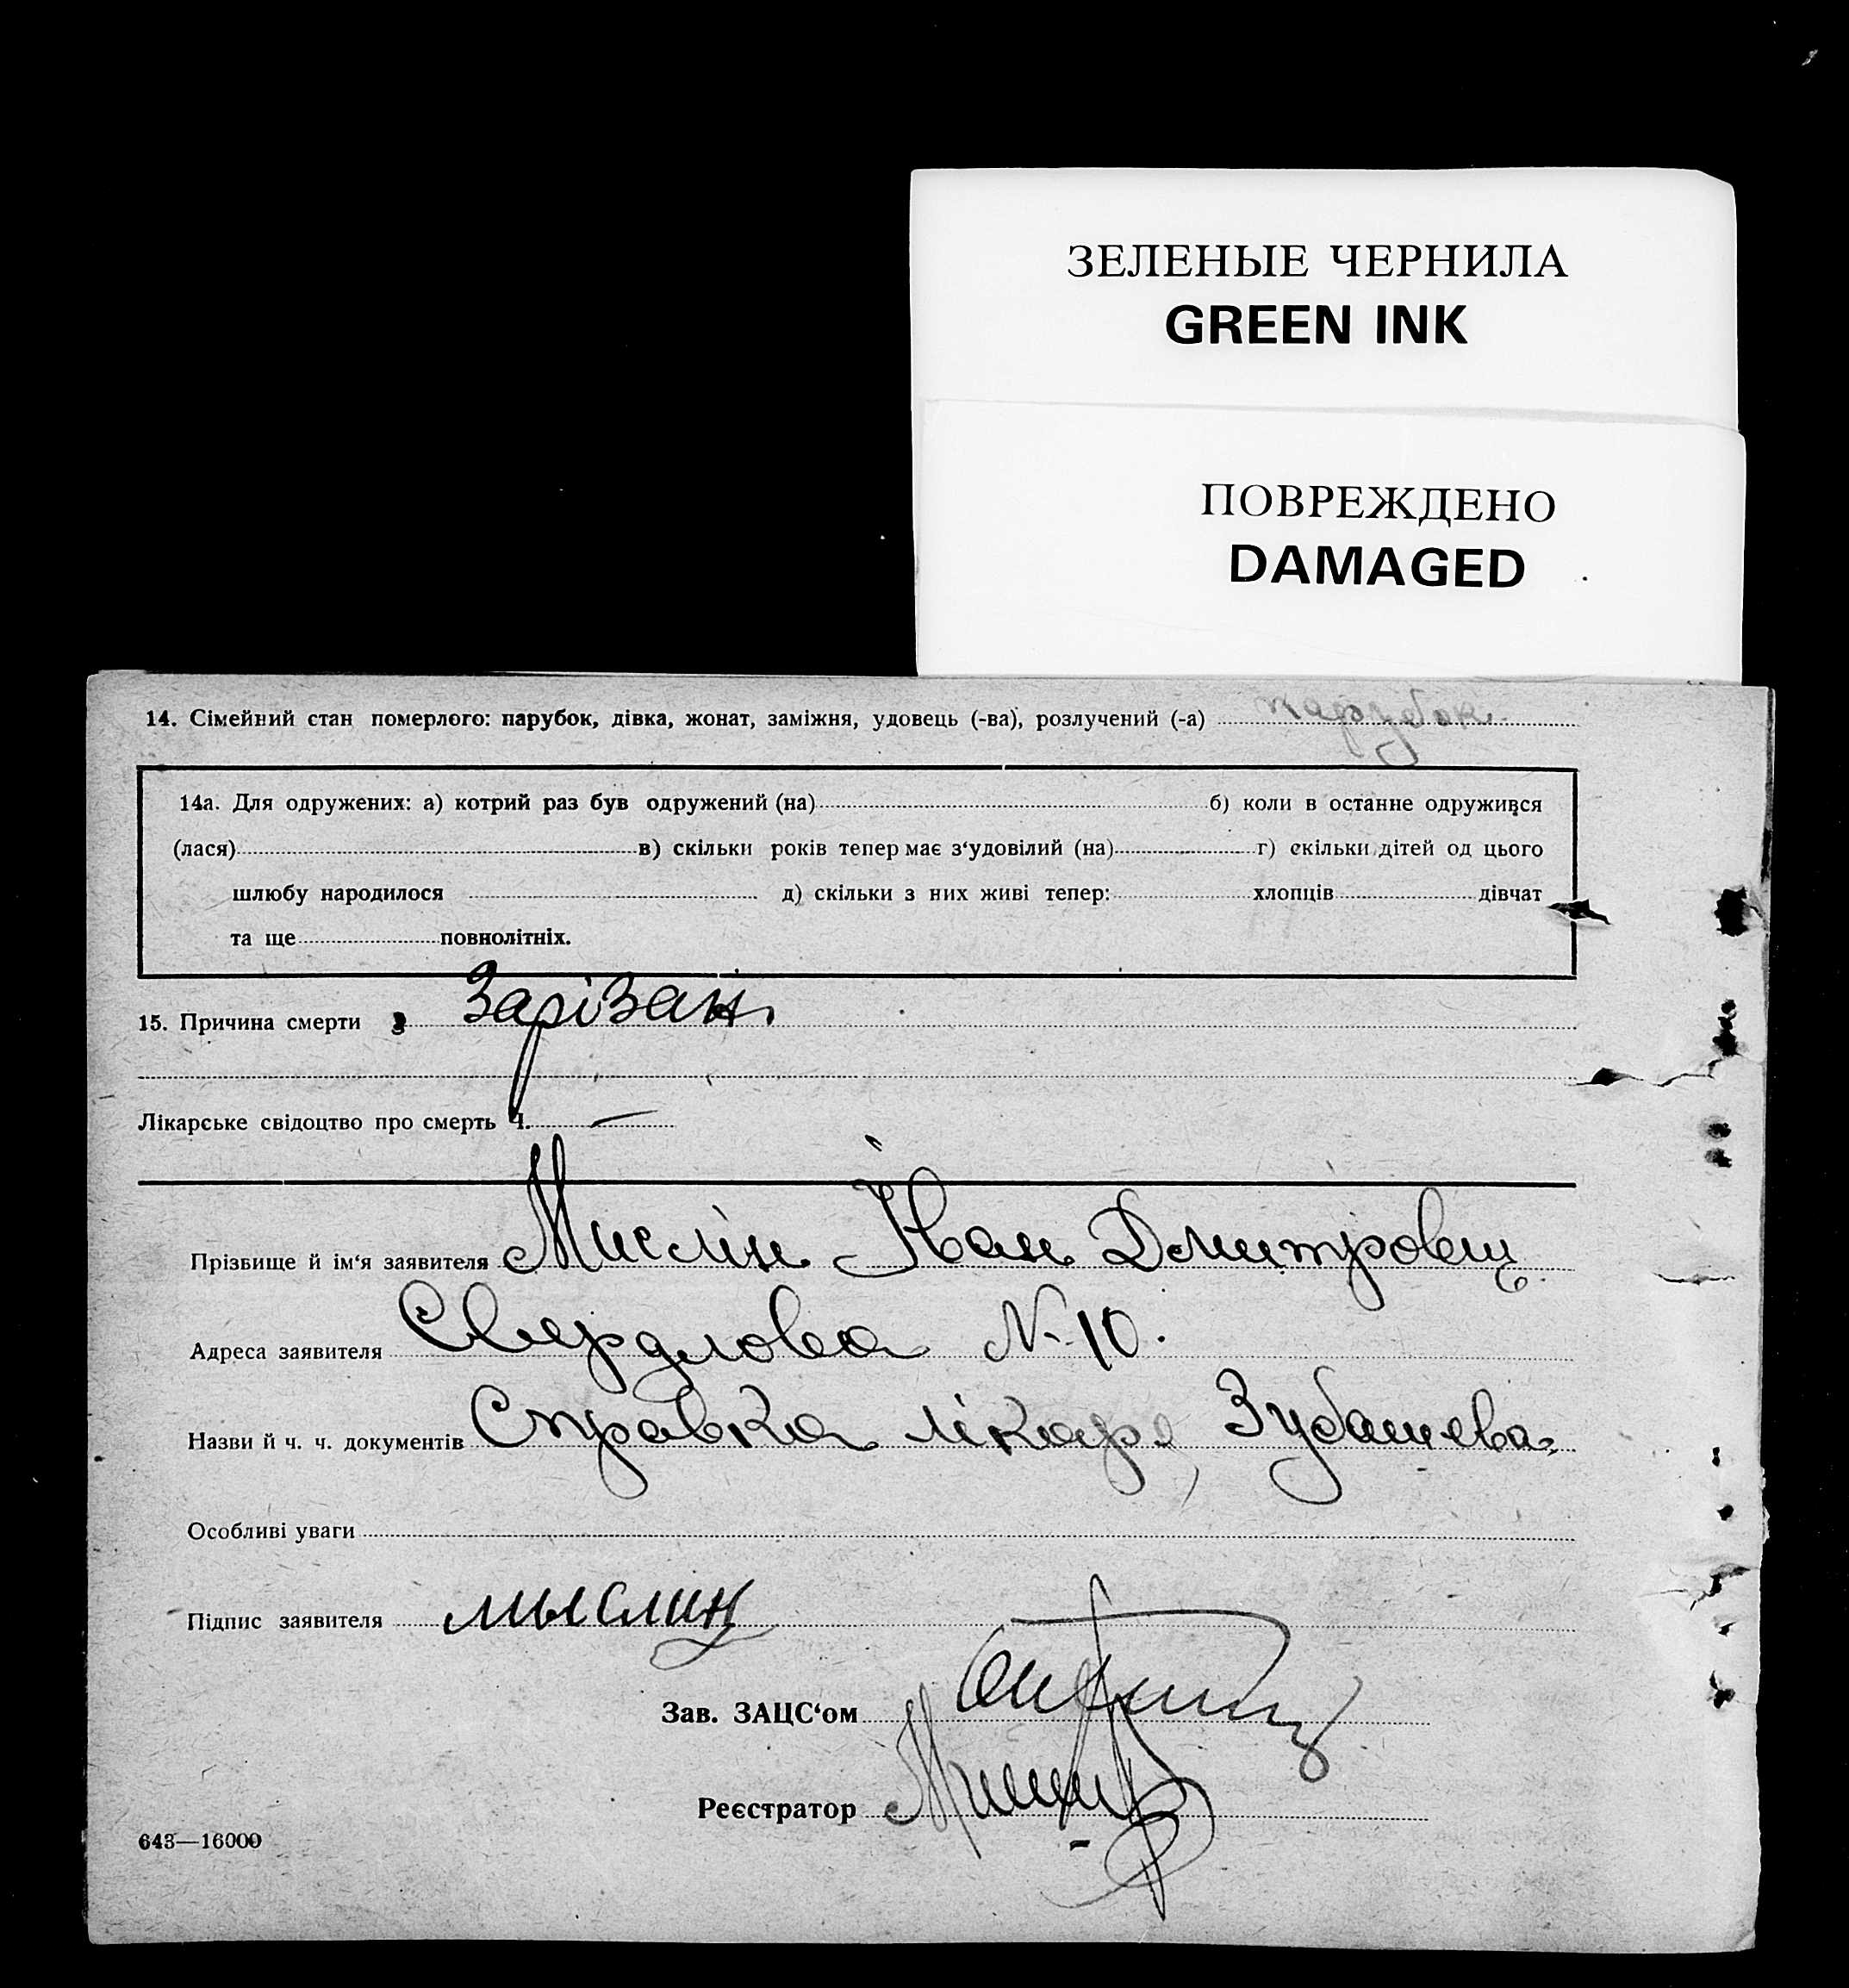 ЗЕЛЕНЫЕ ЧЕРНИЛА
GREEN INK
ПОВРЕЖДЕНО
DAMAGED
14. Сімейний стан померлого: парубок, дівка, жонат, заміжня, удовець (-ва), розлучений (-а) парубок
14а. Для одружених: а) котрий раз був одружений (на) б) коли в останне одружився
(лася) в) скільки років тепер має з‘удовілий (на) г) скільки дітей од цього
шлюбу народилося д) скільки з них живі тепер: хлопців дівчат
та ще повнолітніх.
15. Причина смерти Зарізан
Лікарське свідоцтво про смерть Ч. —
Прізвище й ім‘я заявителя Мислін Іван Дмитровіч
Адреса заявителя Свердлова N-10.
Назви й ч. ч. документів Справка лікаря Зубашева
Особливі уваги
Підпис заявителя Мыслин
Зав. ЗАЦС‘ом
Реєстратор
643—16000